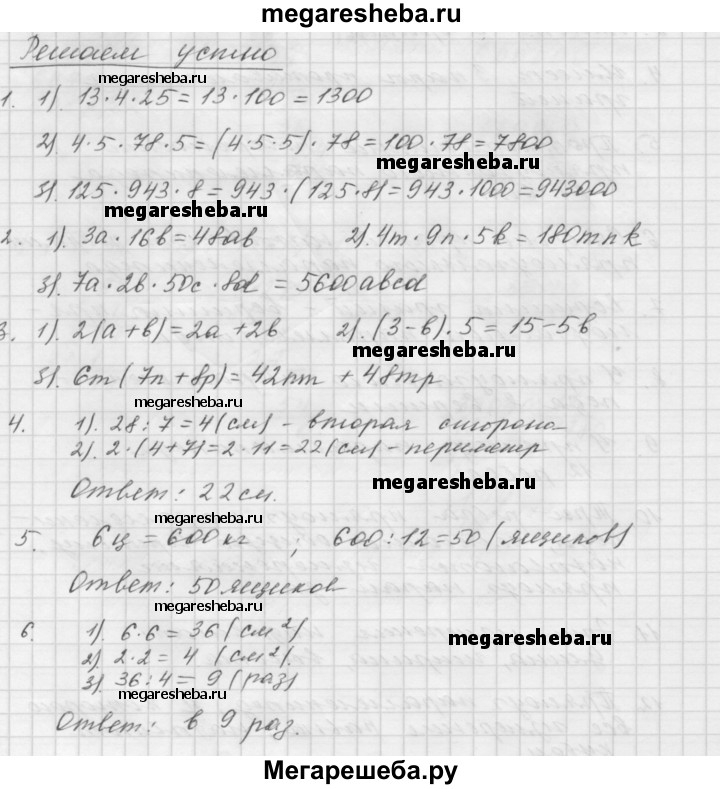 megaresheba.com
Решаем устно
megaresheba.com
1. 1). 13·4·25 = 13·100 = 1300
2). 4·5·78·5 = (4·5·5)·78 = 100·78 = 7800
megaresheba.com
3). 125·943·8 = 943·(125·8) = 943·1000 = 943000
megaresheba.com
2. 1). 3a·16b = 48ab 2). 4m·9n·5k = 180mnk
3). 7a·2b·50c·8d = 5600abcd
3. 1). 2(a+b) = 2a+2b 2). (3-b).5 = 15-5b
megaresheba.com
3). 6m(7n+8p) = 42nm + 48mp
megaresheba.com
4. 1). 28:7=4(см) - вторая сторона
2). 2·(4+7)=2·11=22(см) - периметр
Ответ: 22см.
megaresheba.com
megaresheba.com
5. 6ц = 600кг ; 600:12=50(ящиков)
Ответ: 50 ящиков
megaresheba.com
6. 1). 6·6 = 36 (см²)
megaresheba.com
2). 2·2 = 4 (см²).
3). 36:4 = 9 (раз)
megaresheba.com
Ответ: в 9 раз.
Мегарешеба.ру